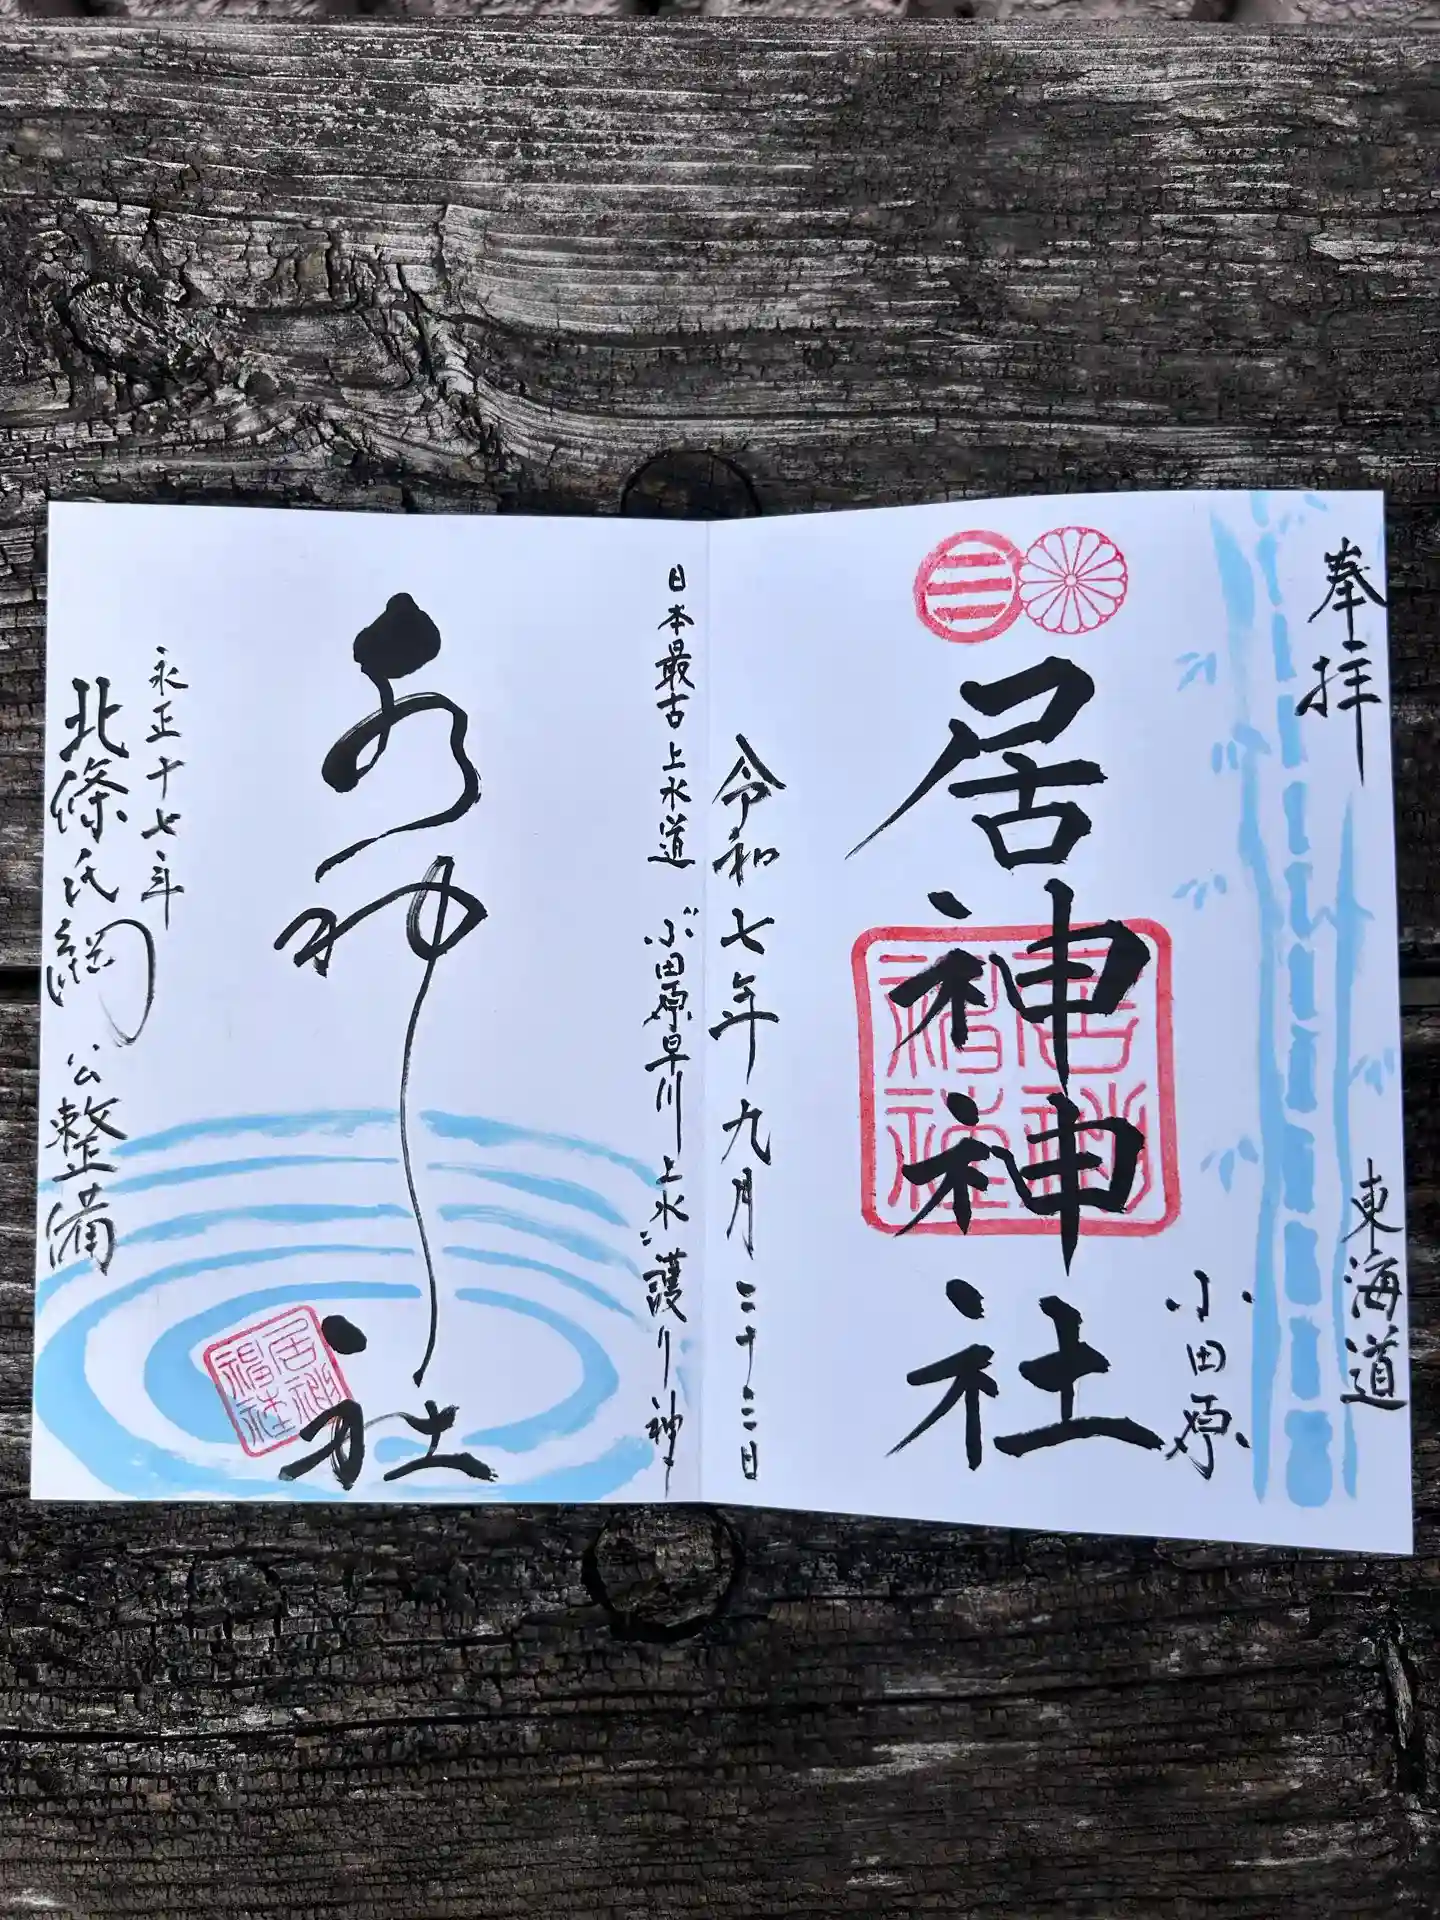 奉拝
東海道
小田原
居神神社
居神
神社
令和七年九月二十二日
日本最古上水道 小田原早川上水ご護り神
水神社
居神
神社
永正十七年
北條氏綱公整備